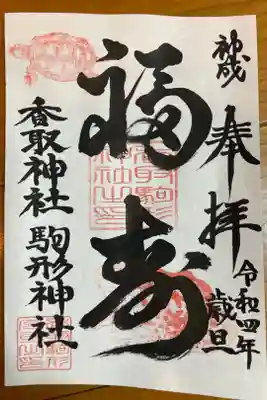 奉拝
令和四年
歳旦
福寿
香取神社 駒形神社